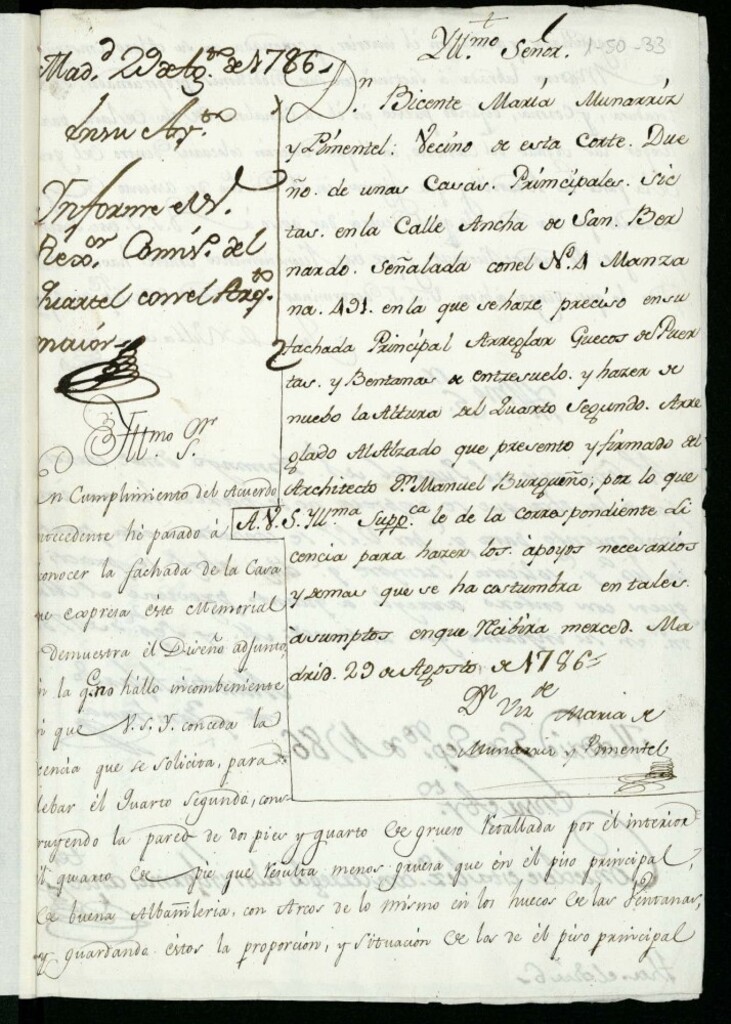 Yll.mo Señor.
1-50-33
D.n Bicente Maria Munarriz
y Pimentel: Vecino de esta Corte. Due
ño. de unas Casas. Principales. Sic
tas. en la Calle Ancha de San. Ber
nardo. Señalada conel N.o 4 Manza
na. 491. en la que se haze preciso en su
fachada Principal Arreglar Guecos de Puer
tas. y Bentanas de entresuelo. y hazer de
nuebo la Altura del Quarto Segundo. Arre
glado Al Alzado que presento y firmado del
Architecto D.n Manuel Burgueño; por lo que
A. V. S. Yll.ma Supp.ca le de la correspondiente Li
cencia para hazer los. apoyos necesarios
y demas que se ha costumbra en tales.
asumptos en que Recibira merced. Ma
drid. 29 de Agosto, de 1786
D.n Viz.te Maria de
Munarriz y Pimentel
Mad.d 29 de Ag.to de 1786
En su Ay.to
Informe el S.r
Rexor. Comis.o del
Quartel con el Arq.to
maior
Yll.mo S.r
En Cumplimiento del Acuerdo
antecedente hé pasado á
conocer la fachada de la Casa
que expresa éste Memorial
demuestra él Diseño adjunto,
en la q.e no hállo incombeniente
en que V. S. Y. conceda la
cencia que se solicita, para
lebar él Quarto Segundo, cons
truyendo la pared de dos pies y quarto de grueso Retallada por él interior
quarto de pie que resulta menos gruesa que én él piso principal,
de buena Albañileria, con Arcos de lo mismo en los huecos de las Ventanas,
y guardando éstos la proporcion, y situación de los de él piso principal